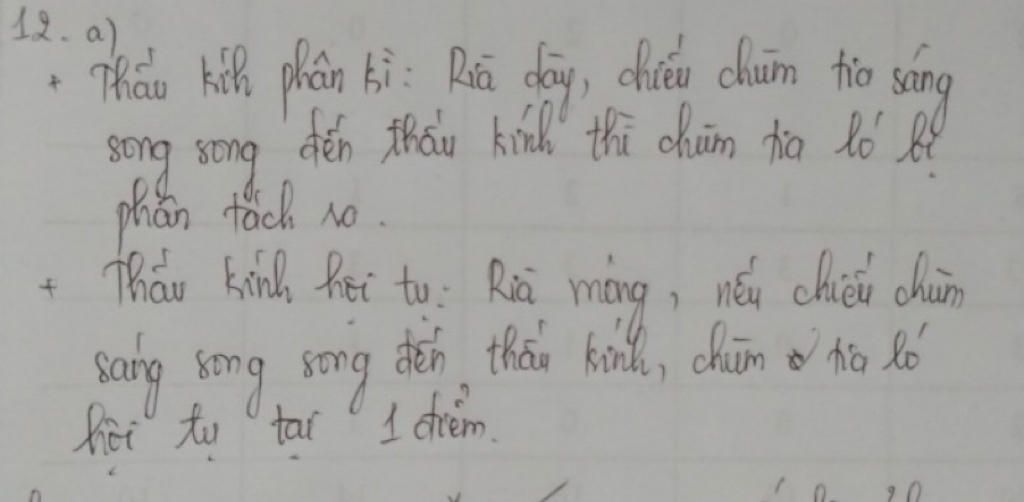 12. a)
+ Thấu kính phân kì: Rìa dày, chiếu chùm tia sáng
song song đến thấu kính thì chùm tia ló bị
phân tách ra.
+ Thấu kính hội tụ: Rìa mỏng, nếu chiếu chùm
sáng song song đến thấu kính, chùm tia ló
hội tụ tại 1 điểm.